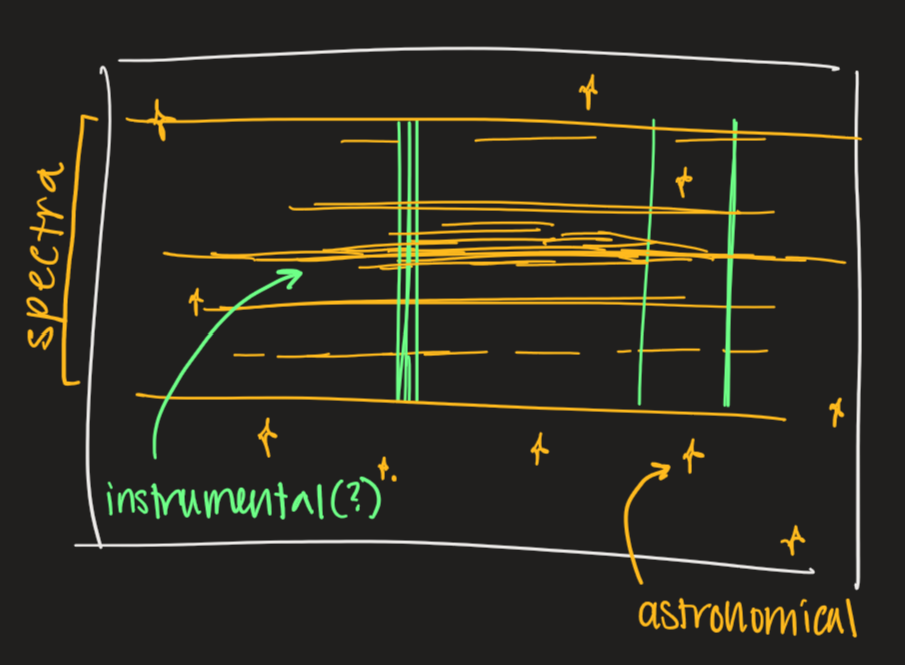 spectra
instrumental(?)
astronomical